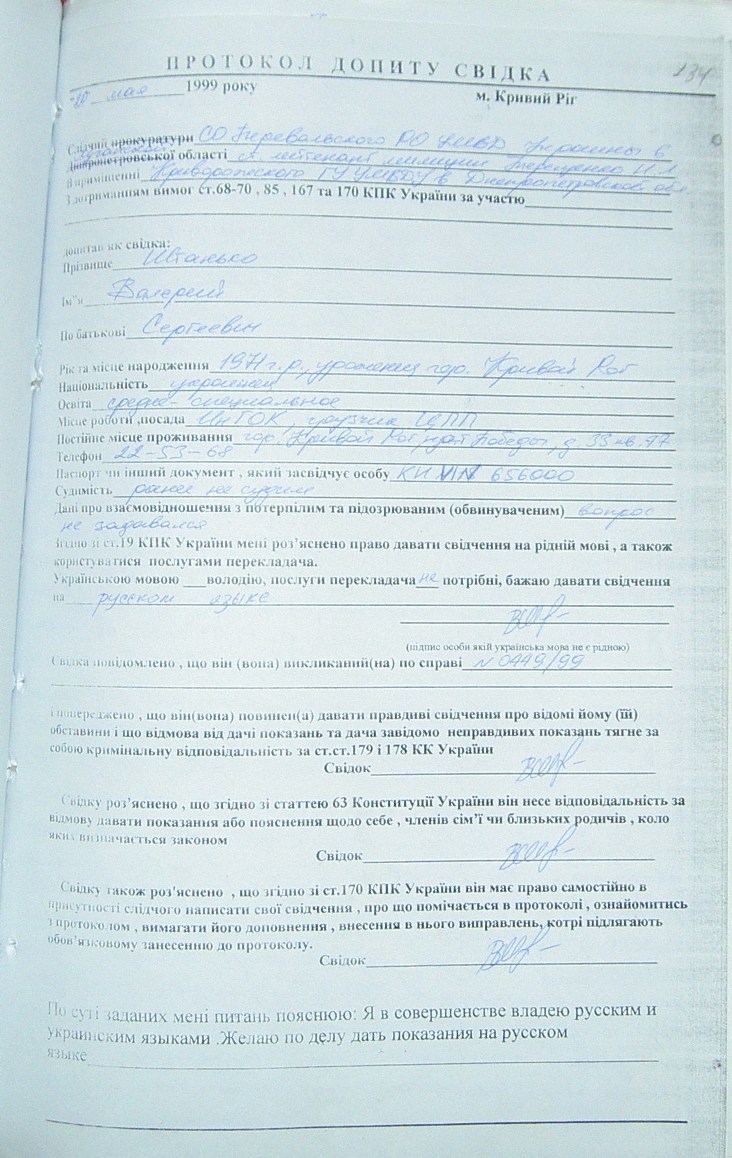 134
ПРОТОКОЛ ДОПИТУ СВІДКА
мая 1999 року
м. Кривий Ріг
Слідчий прокуратури СО Перевальского РО УМВД Украины в
Луганской
Дніропетровської області л-т лейтенант милиции Терещенко И.Л.
В приміщенні Криворожского ГУ УМВДУ в Днепропетровской обл
З дотриманням вимог ст.68-70 , 85 , 167 та 170 КПК України за участю
допитав як свідка:
Прізвище Штанько
Ім"я Валерий
По батькові Сергеевич
Рік та місце народження 1971 г.р., уроженец гор. Кривой Рог
Національність украинец
Освіта средне-специальное
Місце роботи ,посада ИнГОК, грузчик ЦПП
Постійне місце проживання гор. Кривой Рог, прт Победы, д. 33 кв. 77
Телефон 22-53-68
Паспорт чи інший документ , який засвідчує особу КИ № 656000
Судимість ранее не судим
Дані про взаємовідношення з потерпілим та підозрюваним (обвинуваченим) вопрос
не задавался
Згідно зі ст.19 КПК України мені роз’яснено право давати свідчення на рідній мові , а також
користуватися послугами перекладача.
Українською мовою ___володію, послуги перекладача не потрібні, бажаю давати свідчення
на русском языке
(підпис особи якій українська мова не є рідною)
Свідка повідомлено , що він (вона) викликаний(на) по справі N 0449/99
і попереджено , що він(вона) повинен(а) давати правдиві свідчення про відомі йому (їй)
обставини і що відмова від дачі показань та дача завідомо неправдивих показань тягне за
собою кримінальну відповідальність за ст.ст.179 і 178 КК України
Свідок
Свідку роз’яснено , що згідно зі статтею 63 Конституції України він несе відповідальність за
відмову давати показання або пояснення щодо себе , членів сім’ї чи близьких родичів , коло
яких визначається законом
Свідок
Свідку також роз'яснено , що згідно зі ст.170 КПК України він має право самостійно в
присутності слідчого написати свої свідчення , про що помічається в протоколі , ознайомитись
з протоколом , вимагати його доповнення , внесення в нього виправлень, котрі підлягають
обов’язковому занесенню до протоколу.
Свідок
По суті заданих мені питань пояснюю: Я в совершенстве владею русским и
украинским языками .Желаю по делу дать показания на русском
языке